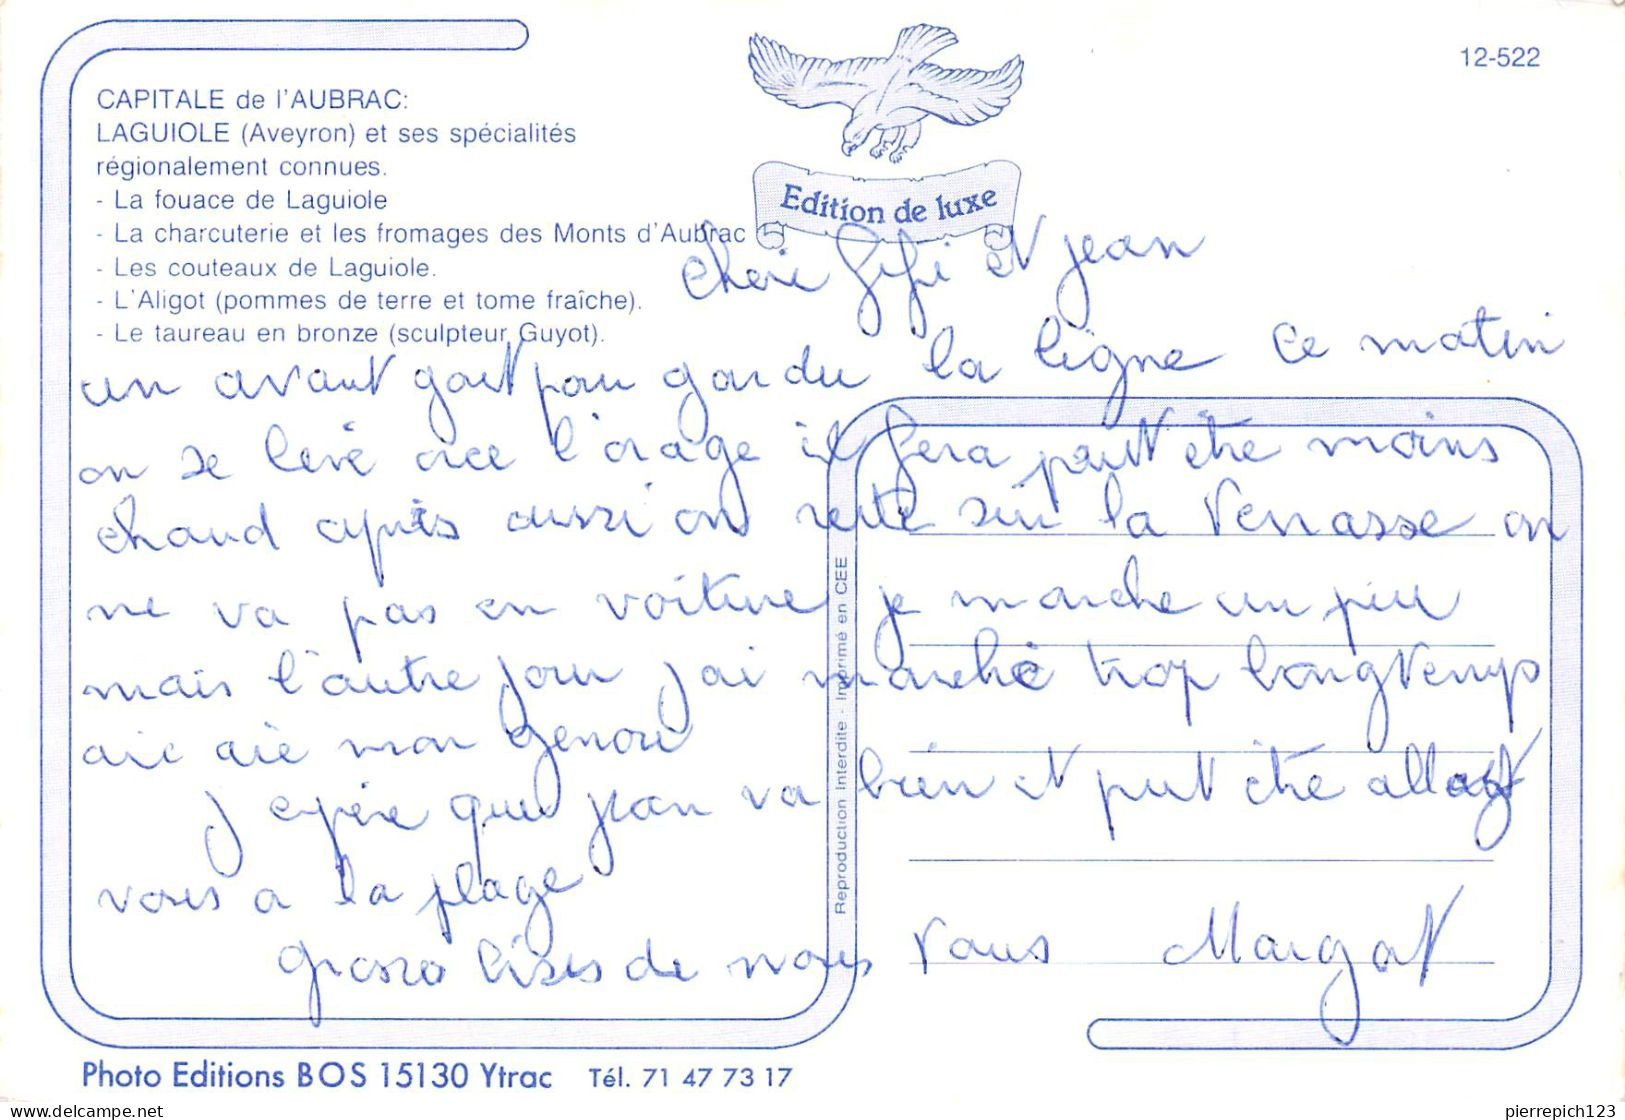 12-522
CAPITALE de l'AUBRAC:
LAGUIOLE (Aveyron) et ses spécialités
régionalement connues.
- La fouace de Laguiole
- La charcuterie et les fromages des Monts d'Aubrac
- Les couteaux de Laguiole.
- L'Aligot (pommes de terre et tome fraîche).
- Le taureau en bronze (sculpteur Guyot).
Edition de luxe
cherie fifi et jean
un avant gout pour garder la ligne ce matin
on se levé avec l'orage il fera peut etre moins
chaud après aussi on reste sur la terrasse on
ne va pas en voiture je marche un peu
mais l'autre jour j'ai marché trop longtemps
aie aie mon genou
j espère que jean va bien et peut être allant
vous a la plage
gross bises de nous tous Margot
Reproduction Interdite - Imprimé en CEE
Photo Editions BOS 15130 Ytrac Tél. 71 47 73 17
pierrepich123